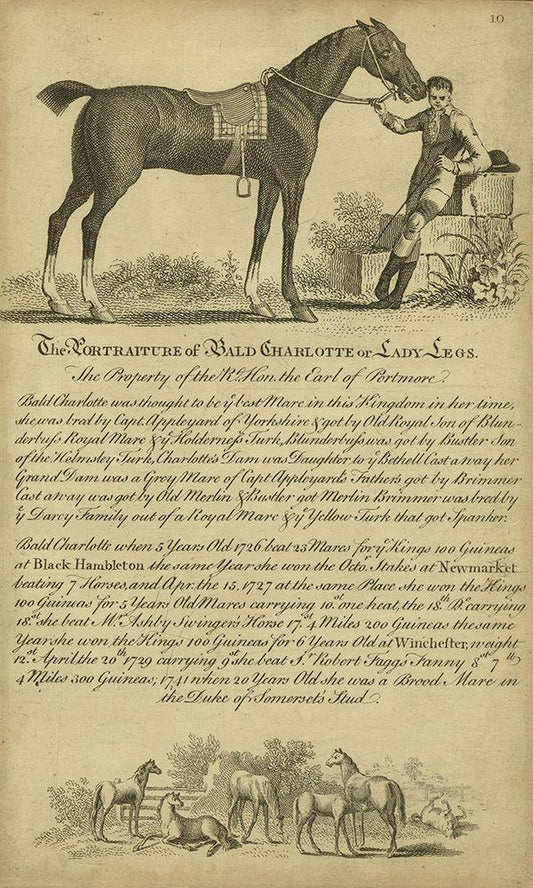 10
The PORTRAITURE of BALD CHARLOTTE or LADY LEGS.
The Property of the Rt. Hon. the Earl of Portmore.
Bald Charlotte was thought to be ye best Mare in this Kingdom in her time,
she was bred by Capt. Appleyard of Yorkshire & got by Old Royal Son of Blun-
derbuss Royal Mare & ye Holderness Turk, Blunderbuss was got by Bustler Son
of the Helmsley Turk, Charlotte's Dam was Daughter to ye Bethell Castaway her
Grand Dam was a Grey Mare of Capt Appleyards Father's got by Brimmer
Castaway was got by Old Merlin & Bustler got Merlin Brimmer was bred by
ye Darcy Family out of a Royal Mare & ye Yellow Turk that got Spanker.
Bald Charlotte when 5 Years Old 1726 beat 23 Mares for ye Kings 100 Guineas
at Black Hambleton the same Year she won the Octo. Stakes at Newmarket
beating 7 Horses, and Apr. the 15, 1727 at the same Place she won the Kings
100 Guineas for 5 Years Old Mares carrying 10st. one heat, the 18th. Do. carrying
18st. she beat Mr. Ashby Swinger's Horse 17st. 4 Miles 200 Guineas the same
Year she won the King's 100 Guineas for 6 Years Old at Winchester, weight
12st. April the 20th 1729 carrying 9st she beat Sr. Robert Faggs Fanny 8st 7th
4 Miles 300 Guineas; 1741 when 20 Years Old she was a Brood Mare in
the Duke of Somerset's Stud.